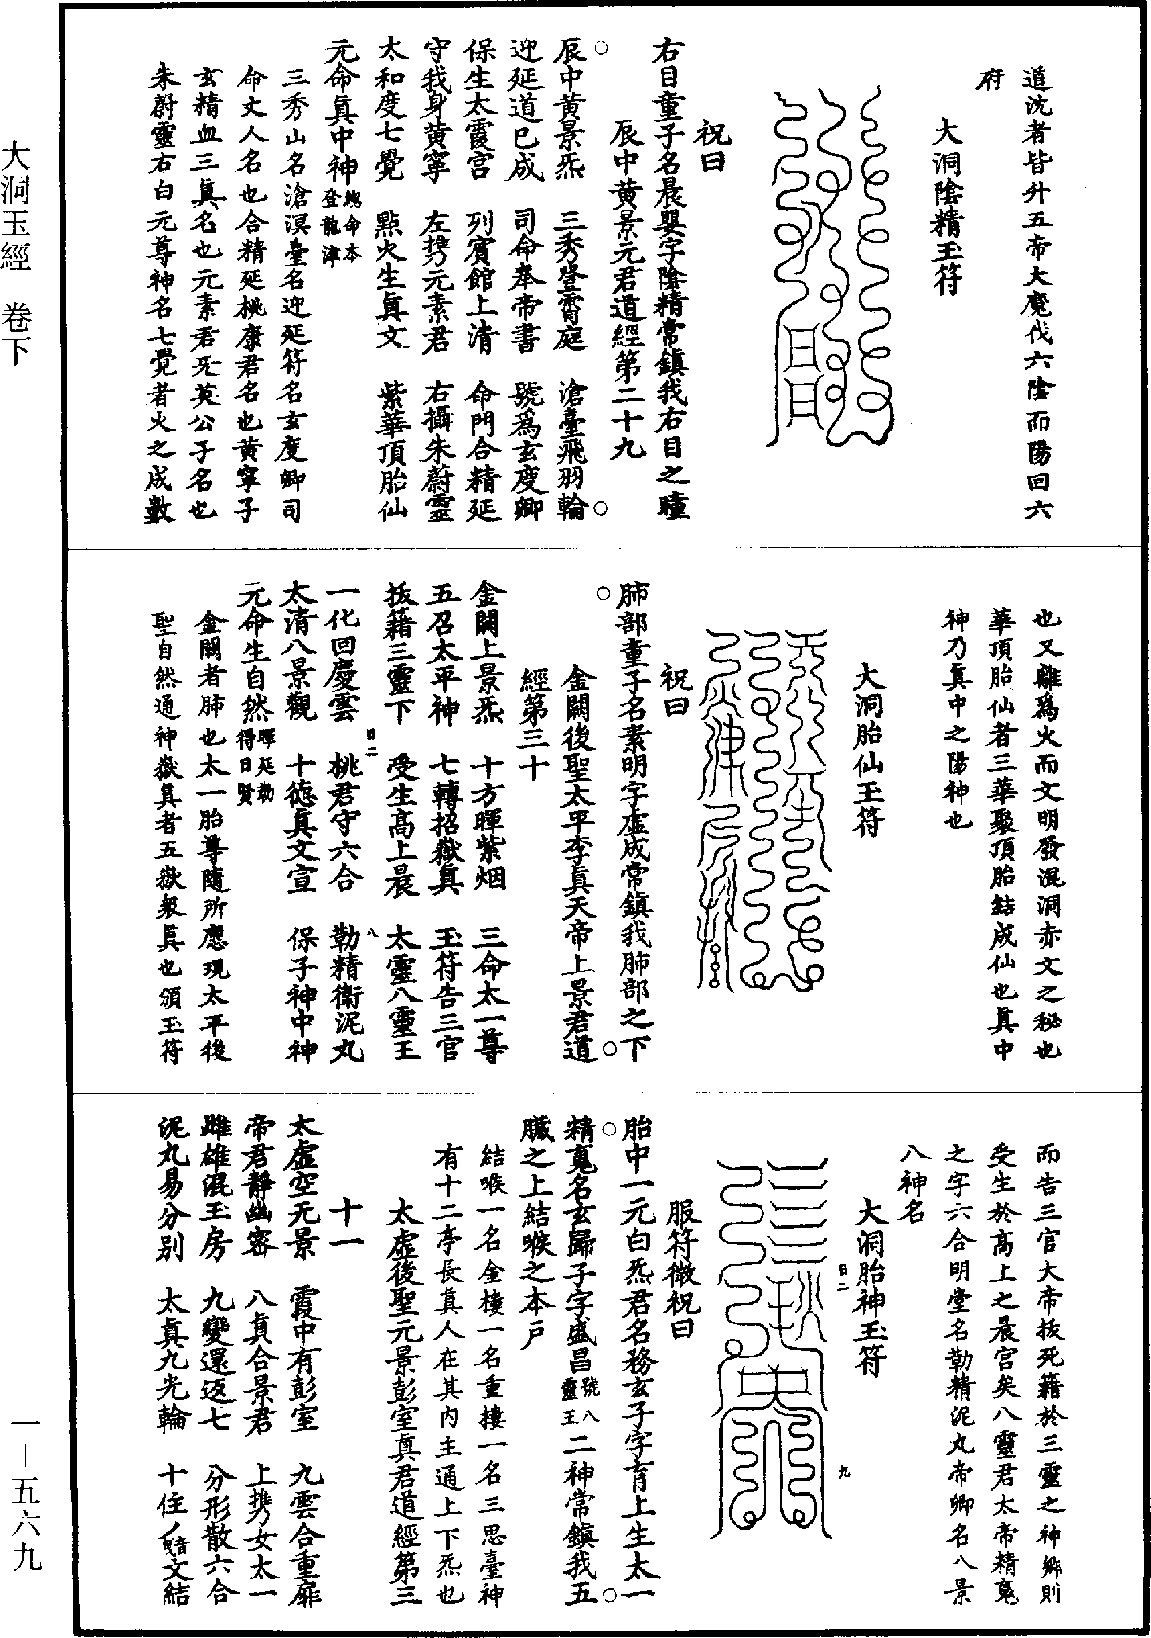 大洞玉經 卷下
道沈者皆升五帝大魔伐六陰而陽回六
府
大洞陰精玉符
祝曰
右目童子名晨嬰字陰精常鎮我右目之瞳
辰中黃景元君道經第二十九
○
辰中黃景炁 三秀登霄庭 滄臺飛羽輪
迎延道已成 司命奉帝書 號爲玄度卿
○
保生太霞宮 列賓館上清 命門合精延
守我身黃寧 左携元素君 右攝朱蔚靈
太和度七覺 點火生真文 紫華頂胎仙
元命真中神總命本登龍津
三秀山名滄溟臺名迎延符名玄度卿司
命丈人名也合精延桃康君名也黃寧子
玄精血三真名也元素君旡英公子名也
朱蔚靈右白元尊神名七覺者火之成數
也又離為火而文明發混洞赤文之秘也
華頂胎仙者三華聚頂胎結成仙也真中
神乃真中之陽神也
大洞胎仙玉符
祝曰
肺部童子名素明字虛成常鎮我肺部之下
○
金闕後聖太平李真天帝上景君道
經第三十
○
金闕上景炁 十方暉紫烟 三命太一尊
五召太平神 七轉招嶽真 玉符告三官
拔籍三靈下 受生高上晨 太靈八靈王
日二
八
一化回慶雲 桃君守六合 勒精衛泥丸
太清八景觀 十德真文宣 保子神中神
元命生自然暉延勃得日賢
金闕者肺也太一胎尊隨所應現太平後
聖自然通神嶽真者五嶽衆真也頒玉符
而告三官大帝拔死籍於三靈之神鄉則
受生於高上之晨宮矣八靈君太帝精䰟
之字六合明堂名勒精泥丸帝卿名八景
八神名
大洞胎神玉符
日二
九
服符微祝曰
胎中一元白炁君名務玄子字育上生太一
精䰟名玄歸子字盛昌號八靈王二神常鎮我五
○
○
臟之上結喉之本戶
結喉一名金樓一名重樓一名三思臺神
有十二亭長真人在其内主通上下炁也
太虛後聖元景彭室真君道經第三
十一
太虛空无景 霞中有彭室 九雲合重扉
帝君靜幽密 八真合景君 上携女太一
雌雄混玉房 九變還返七 分形散六合
泥丸易分别 太真九光輪 十住文結
一—五六九